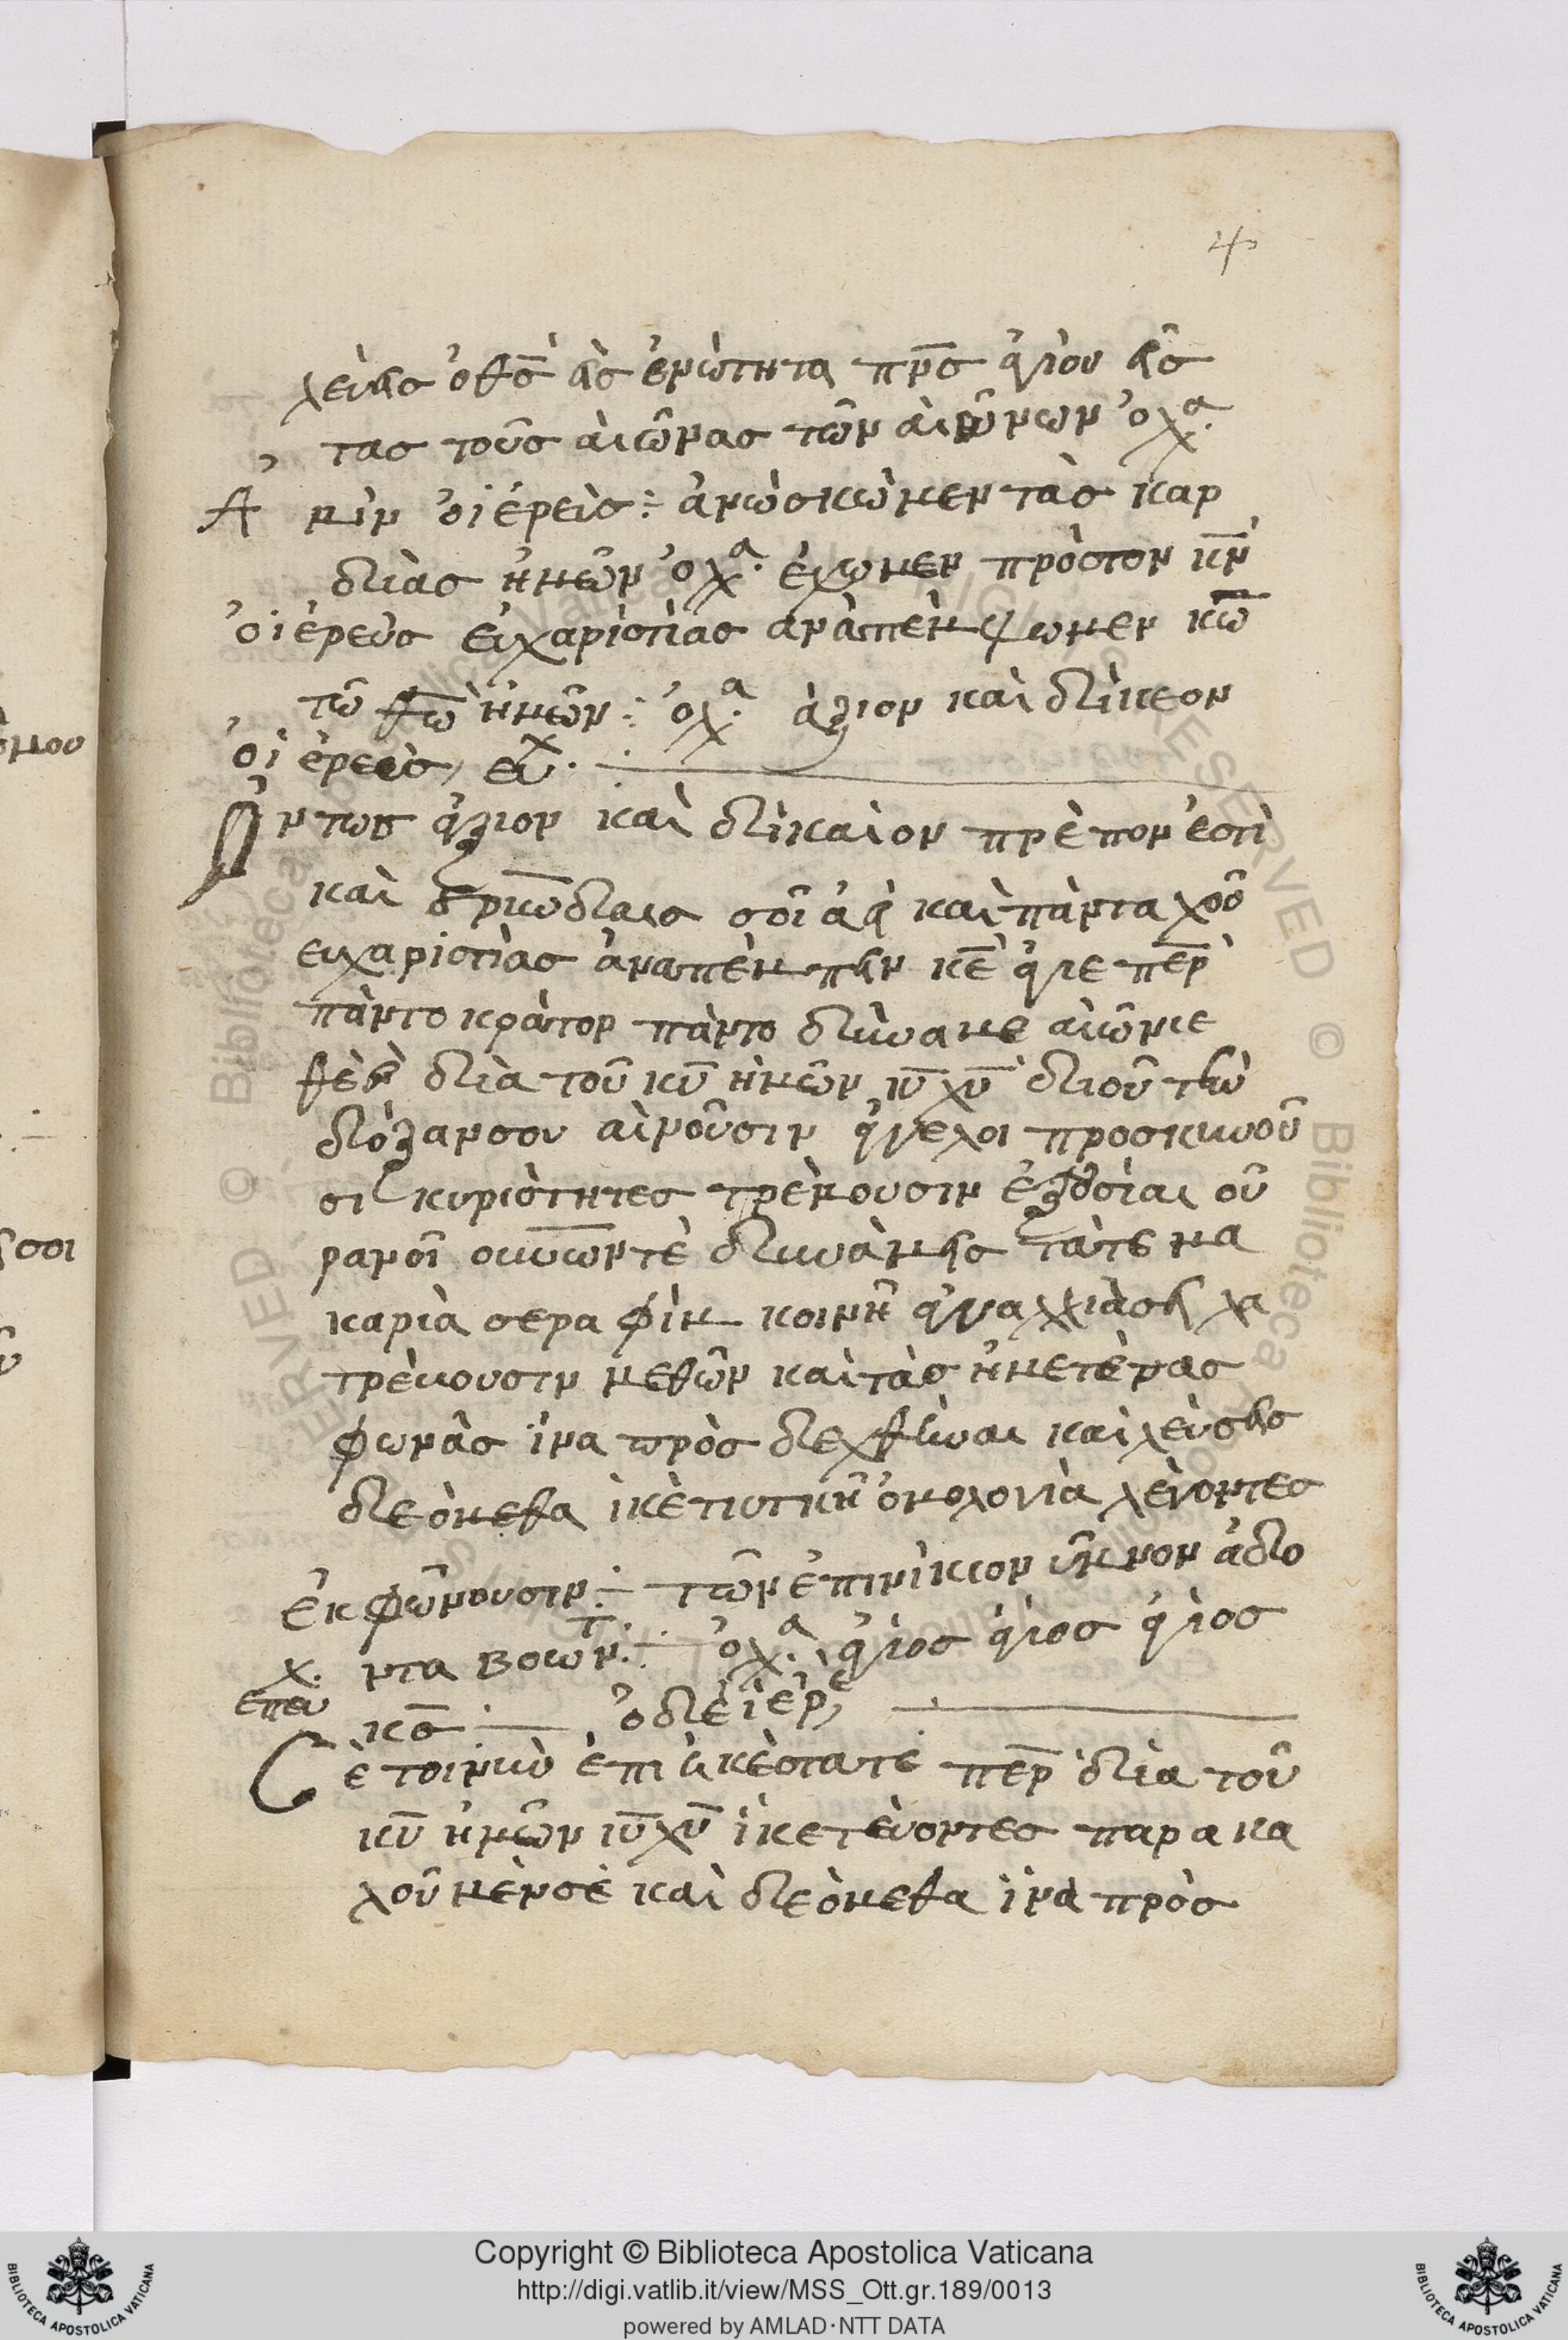 4
λεύεισ ὁ θ̅σ̅ εἰσ ἑνώτητα πν̅σ̅ ἁγίου εἰσ
τασ τοὺσ αἰῶνασ τῶν αἰώνων ὁ λ^α
Ἀ μὴν ὁ ἱερεὺσ ÷ ἀνώσκώμεν τὰσ καρ
δίασ ἡμῶν ὁ λ^α. ἔχωμεν πρὸστον κ̅ν̅
ὁ ἱερεὺσ εὐχαριστίασ ἀναπέμψωμεν κ̅ω̅
τῶ θ̅ω̅ ἡμῶν ÷ ὁ λ^α. ἄξιον καὶ δίκεον
ὁ ἱερεὺσ, εὐ^χ.
Ὄντωσ ἄξιον καὶ δίκαιον πρέπον ἐστὶ
καὶ
εὐχαριστίασ ἀναπέμπειν κ̅ε̅ ἅγιε π̅ε̅ρ̅
πάντο κράτορ πάντο δύναμε αἰώνιε
θεὲ διὰ τοῦ κ̅υ̅ ἡμῶν ι̅υ̅ χ̅υ̅ διοῦ τὴν
δόξανσου αἰνοῦσιν ἄγγελοι προσκυνοῦ
σι κυριότητεσ τρέμουσιν ἐξουσίαι οὐ
ρανοὶ οὐνῶντὲ δυνάμεισ τάτε μα
καρία σεραφίμ κοινῆ ἀγαλλιάσει λα
τρέυουσιν μεθῶν καὶ τὰσ ἡμετέρασ
φωνὰσ ἵνα πρὸσ δεχθῆναι καὶ λεύσεισ
δεόμεθα ἱκὲτιστικῆ ὁμολογία λέγοντεσ
ἐκ φώνουσιν ÷ τῶν ἐπινίκιον ὕμνον ἄδο
χ. ντα βοῶν^τ. ÷ ὁ λ^α. ἅγιοσ ἅγιοσ ἅγιοσ
ἐπευ κ̅σ̅ ÷ ὁ δὲ ἱερ^ε
Σὲ τοιγκὺ ἐπιεικέστατε π̅ε̅ρ̅ διὰ τοῦ
κ̅υ̅ ἡμῶν ι̅υ̅ χ̅υ̅ ἱκετεύοντεσ παρακα
λοῦμένσὲ καὶ δεόμεθα ἵνα πρὸσ
Copyright © Biblioteca Apostolica Vaticana
http://digi.vatlib.it/view/MSS_Ott.gr.189/0013
powered by AMLAD·NTT DATA